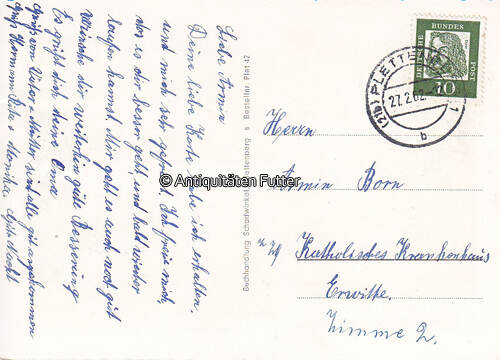 Liebe Armin
Deine liebe Karte habe ich erhalten.
und mich sehr gefreut. Ich freu mich,
das es dir besser geht, und bald wieder
laufen kannst. Mir geht es auch noch gut
wünsche dir weiterhin gute Besserung
Es grüßt dich deine Oma
Gruß von Vater, Mutter sind alle gut angekommen
Gruß Hermann Rita + Monika.
Buchhandlung Schadwinkel Plettenberg s Bestellnr. Plet 42
© Antiquitäten Futter
DEUTSCHE BUNDES POST
10
(21b) PLETTENBERG 1
27.2.62
b
Herrn
Armin Born
z. Zt. Katholisches Krankenhaus
Erwitte.
Zimme 2.